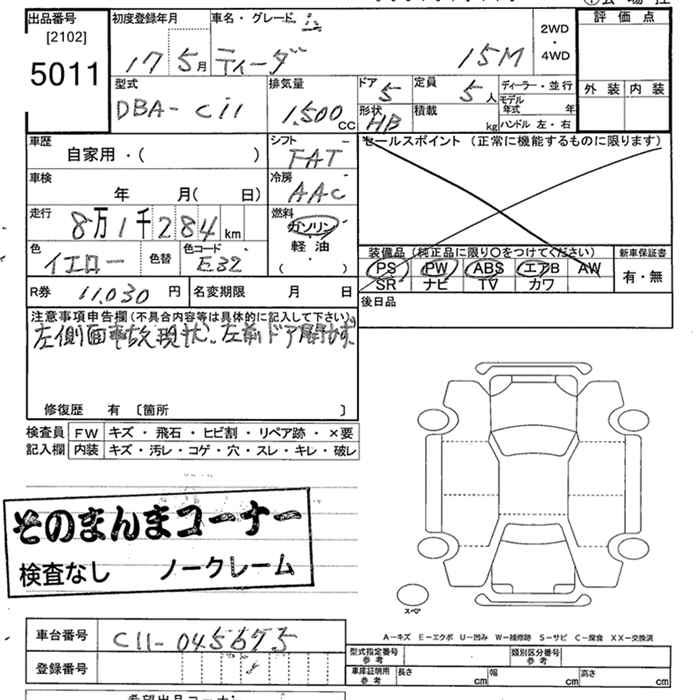 出品番号 初度登録年月 車名・グレード 評価点
[2102]
5011
17 5月 ティーダ 15M 2WD・4WD
外装 内装
型式 排気量 ドア 定員 ディーラー・並行
DBA-C11 1,500CC 5 5人 モデル年式 年
形状 積載 ハンドル 左・右
HB kg
車歴 シフト セールスポイント(正常に機能するものに限ります)
自家用・( ) FAT
車検 冷房
年 月( 日) AAC
走行 燃料
8万1千284km ガソリン
軽油
( )
色 色替 色コード 装備品(純正品に限り〇をつけてください) 新車保証書
イエロー E32 PS PW ABS エアB AW 有・無
SR ナビ TV カワ
R券 11,030円 名変期限 月 日 後日品
注意事項申告欄(不具合内容等は具体的に記入して下さい)
左側面事故現状、左前ドア開かず
修復歴 有 〔箇所 〕
検査員 FW キズ・飛石・ヒビ割・リペア跡・×要
記入欄 内装 キズ・汚レ・コゲ・穴・スレ・キレ・破レ
そのまんまコーナー
検査なし ノークレーム
スペア
A-キズ E-エクボ U-凹み W-補修跡 S-サビ C-腐食 XX-交換済
車台番号 C11-045675
型式指定番号 参考 類別区分番号 参考
登録番号
車庫証明用 参考 長さ cm 幅 cm 高さ cm